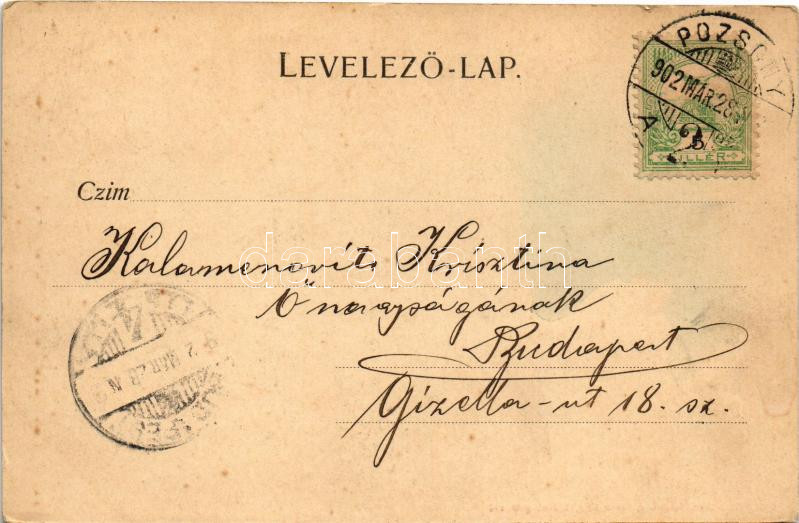 LEVELEZŐ-LAP.
POZSONY
902 MÁR. 28
A
5
FILLÉR
Czim
Kalamenovits Krisztina
Őnagyságának
Budapest
Gizella-ut 18. sz.
darabanth